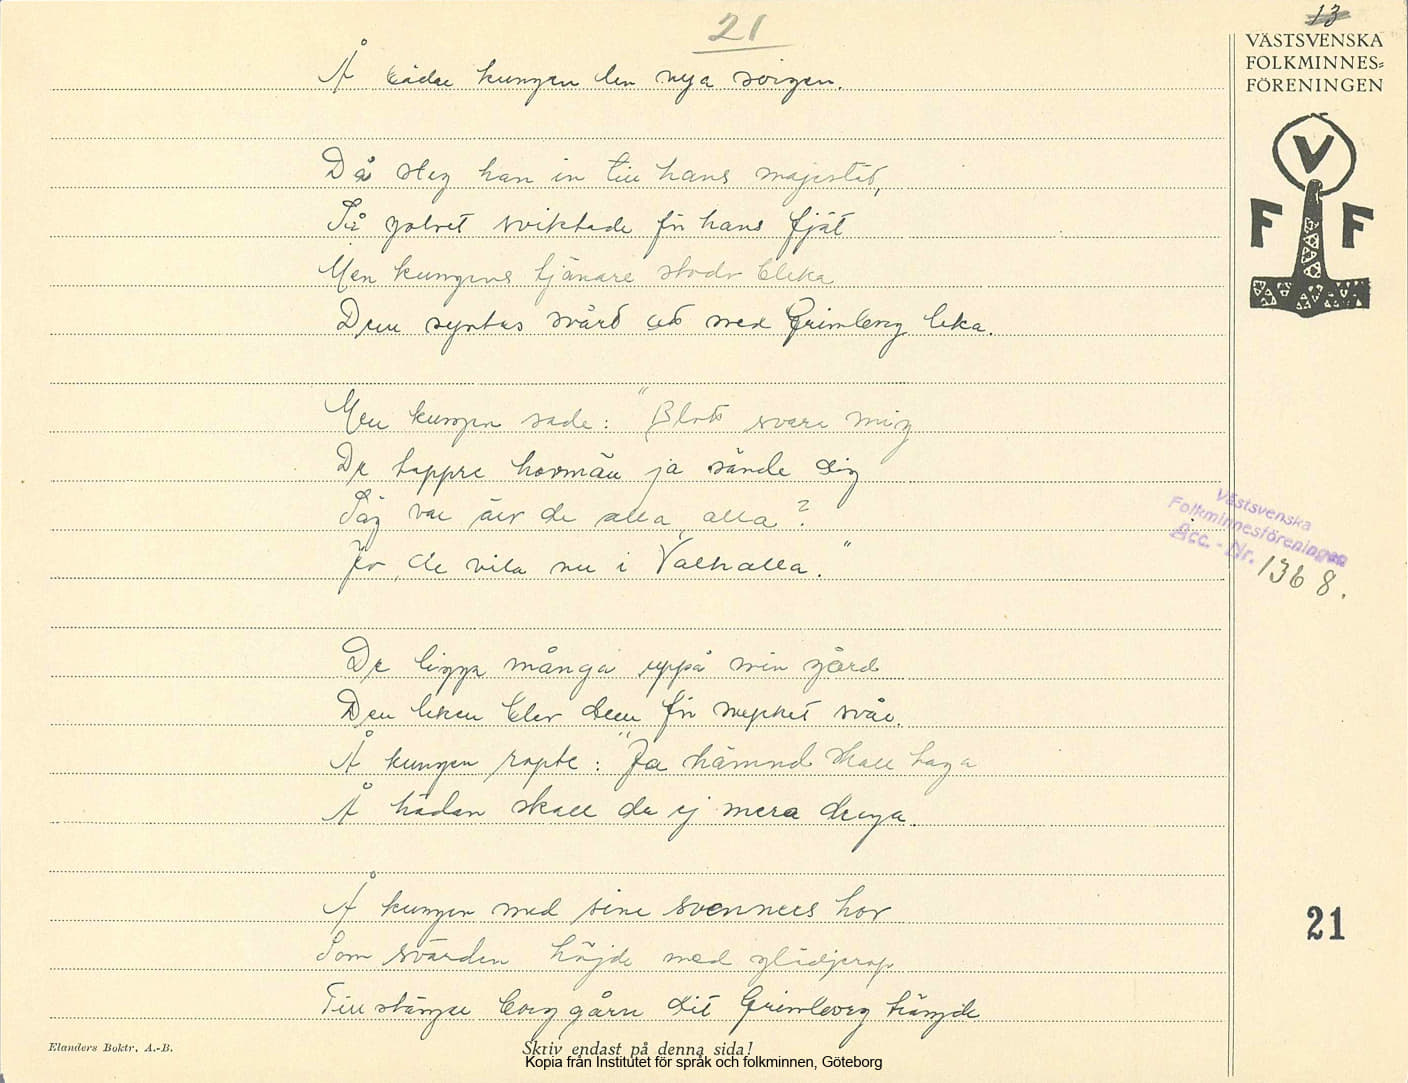 21
13
VÄSTSVENSKA
FOLKMINNES=
FÖRENINGEN
V
F F
Å både kungen den nya svigen.
Då steg han in till hans majestät,
Så golvet sviktade för hans fjät
Men kungens tjänare stodo bleka
Dem syntes svårt att med Grimborg leka.
Men kungen sade: "Blott svara mig
De tappre hovmän ja sände dig
Säg var äro de alla, alla?
Jo, de vila nu i Valhalla."
De ligga många uppå min gård
Den leken blev dem för mycket svår.
Å kungen ropte: "Ja hämnd skall taga
Å hädan skall du ej mera draga.
Å kungen med sine svenners hop
Som svärden höjde med glädjerop
Till stängse borggårn dit Grimborg trängde
Västsvenska
Folkminnesföreningen
Acc. - Nr. 1368.
21
Elanders Boktr. A.-B.
Skriv endast på denna sida!
Kopia från Institutet för språk och folkminnen, Göteborg